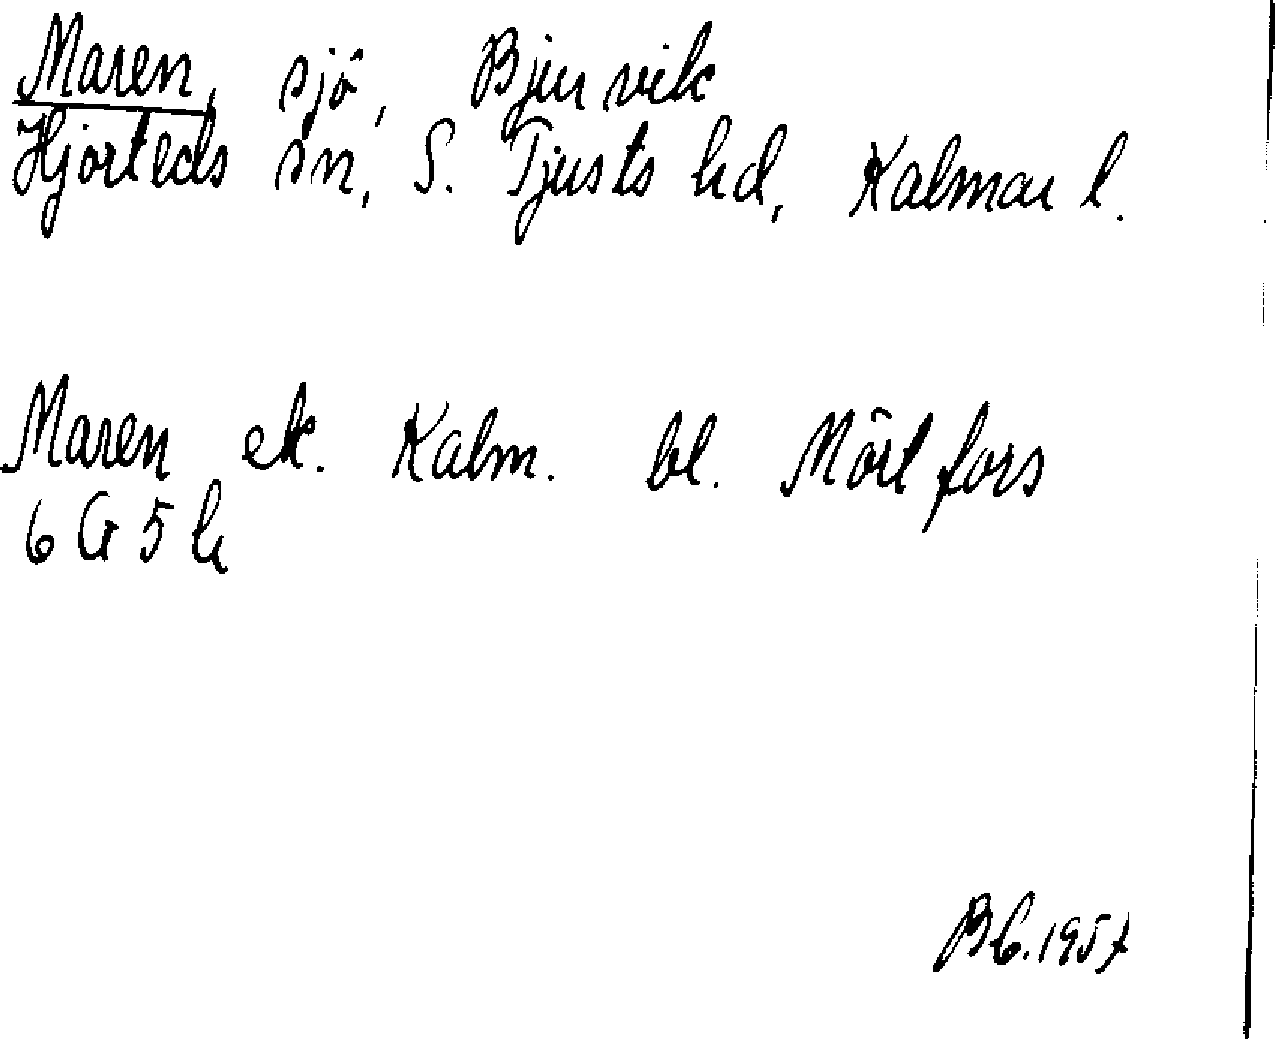 Maren, sjö, Bjurvik
Hjorteds sn, S. Tjusts hd, Kalmar l.
Maren ek. Kalm. bl. Mörtfors
6 G 5 h
BG. 1957